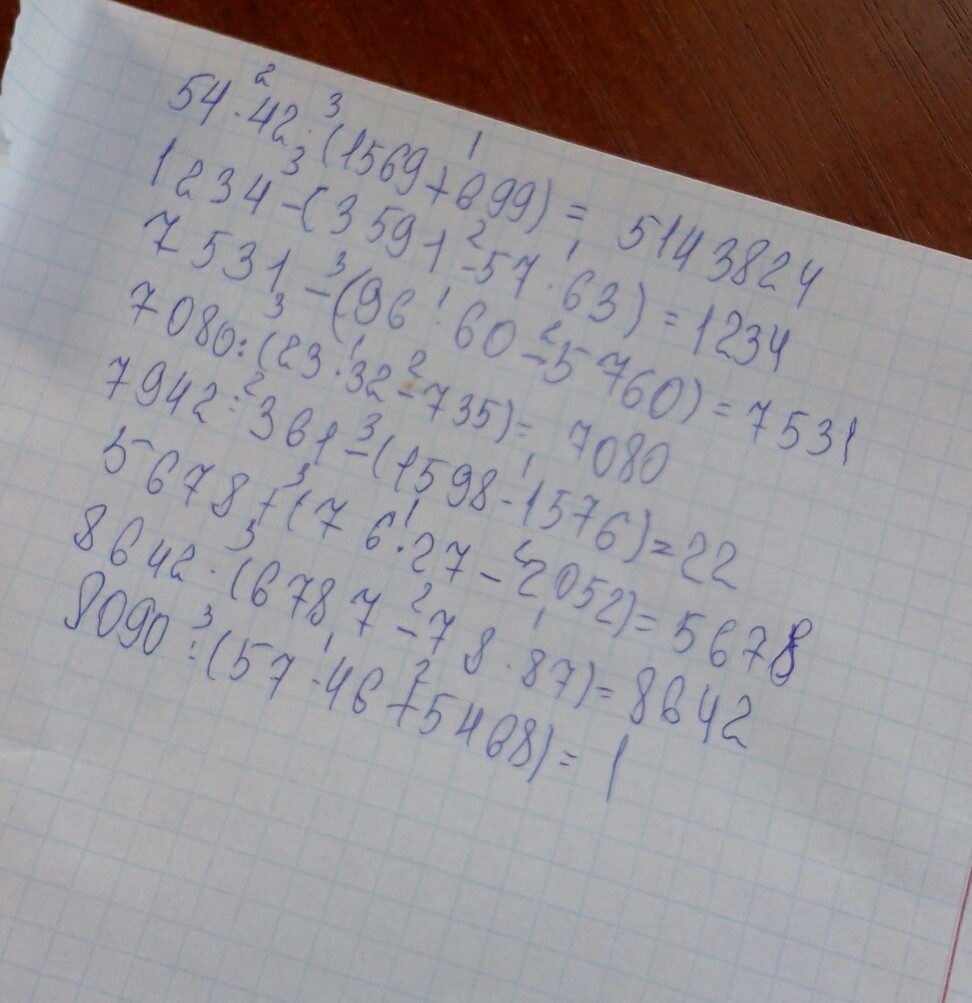 2 3 1
54 · 42 · (1569 + 699) = 5143824
3 2 1
1234 - (3591 - 57 · 63) = 1234
3 1 2
7531 - (96 · 60 - 5760) = 7531
3 1 2
7080 : (23 · 32 - 735) = 7080
2 3 1
7942 : 361 - (1598 - 1576) = 22
3 1 2
5678 + (76 · 27 - 2052) = 5678
3 2 1
8642 · (6787 - 78 · 87) = 8642
3 1 2
8090 : (57 · 46 + 5468) = 1